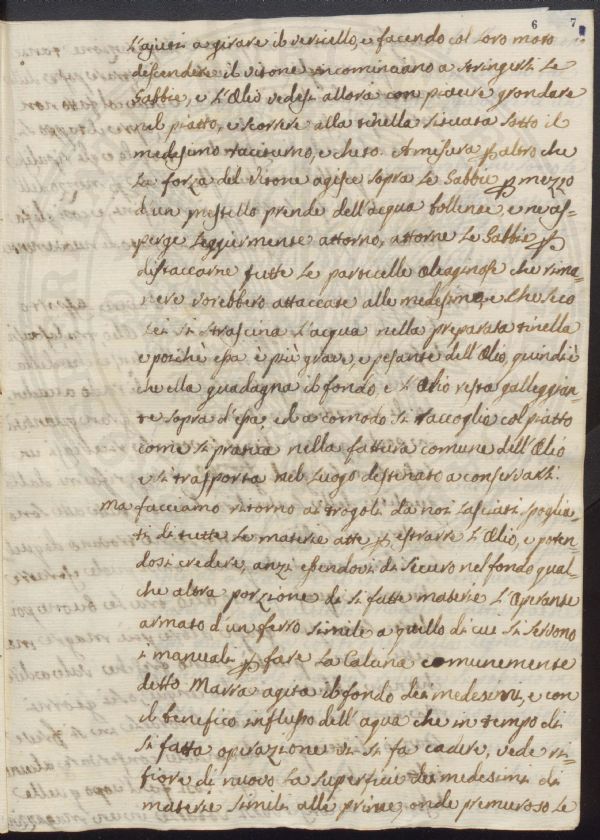 6 7
L'ajuti a girare il verricello, e facendo col loro moto
descendere il vitone incominciano a stringersi le
Gabbie, e l'Olio vedesi allora con piacere grondare
nel piatto, e scorrere alla tinella situata sotto il
medesimo taciturno, e cheto. A misura però che
la forza del vitone agisce sopra le Gabbie per mezzo
d'un prestello prende dell'acqua bollente e ne as-
perge leggiermente attorno, attorno le Gabbie per
distaccarne tutte le particelle oleaginose che rima-
nere vorebbero attaccate alle medesime, e che seco
lei si strascina l'acqua nella preparata tinella
e poichè essa è più grave, e pesante dell'Olio, quindi è
che ella guadagna il fondo, e l'Olio resta galleggian-
te sopra d'essa, ed a comodo si raccoglie col piatto
come si pratica nella fattura comune dell'Olio
e si trasporta nel luogo destinato a conservarsi.
Ma facciamo ritorno ai trogoli da noi lasciati spoglia-
ti di tutte le materie atte per estrarre l'Olio, e poten-
dosi credere, anzi essendovi di sicuro nel fondo qual-
che altra porzione di si fatte materie l'Operante
armato d'un ferro simile a quello di cui si servono
i manuali per fare la Calcina comunemente
detto Marra agita il fondo dei medesimi, e con
il benefico influsso dell'aqua che in tempo di
si fatta operazione vi si fa cadere, vede ri-
fiorire di nuovo la superficie dei medesimi di
materie simili alle prime, onde premuroso le